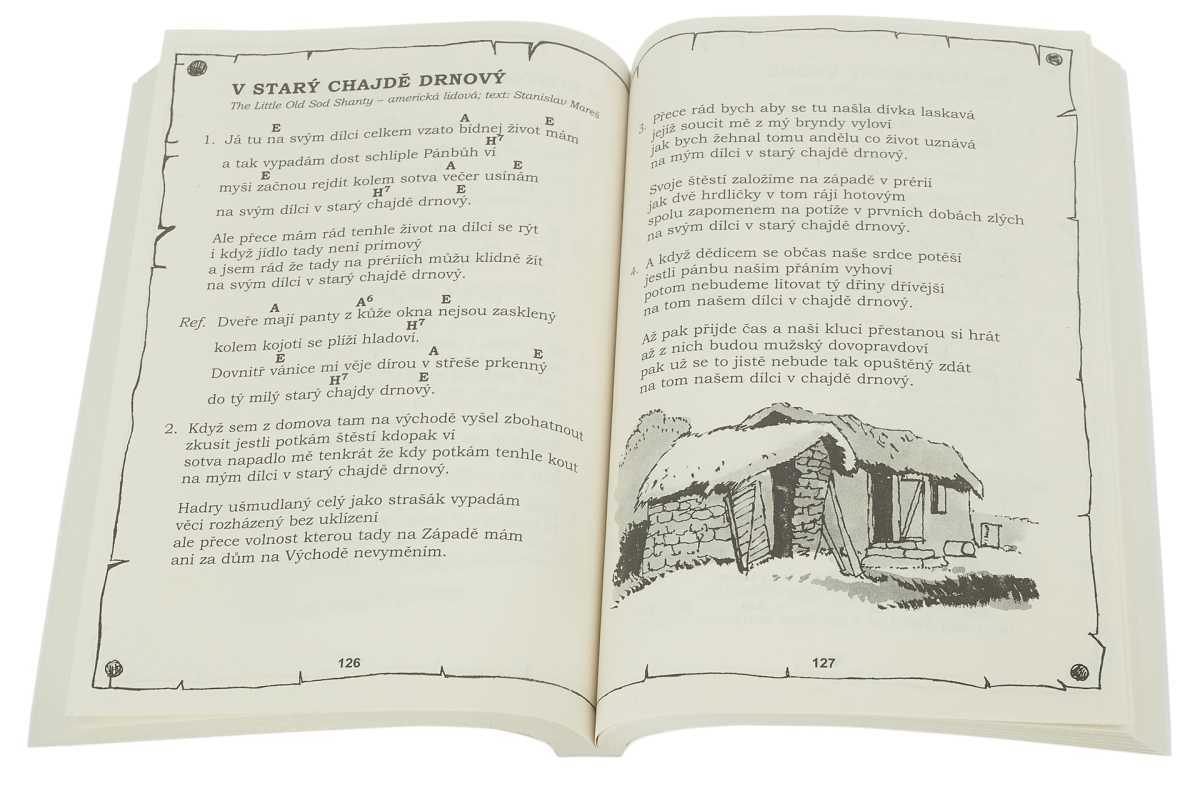 V STARÝ CHAJDĚ DRNOVÝ
The Little Old Sod Shanty – americká lidová; text: Stanislav Mareš
E A E
1. Já tu na svým dílci celkem vzato bídnej život mám
H7
a tak vypadám dost schliple Pánbůh ví
E A E
myši začnou rejdit kolem sotva večer usínám
H7 E
na svým dílci v starý chajdě drnový.
Ale přece mám rád tenhle život na dílci se rýt
i když jídlo tady není prímový
a jsem rád že tady na prériích můžu klidně žít
na svým dílci v starý chajdě drnový.
A A6 E
Ref. Dveře mají panty z kůže okna nejsou zasklený
H7
kolem kojoti se plíží hladoví.
E A E
Dovnitř vánice mi věje dírou v střeše prkenný
H7 E
do tý milý starý chajdy drnový.
2. Když sem z domova tam na východě vyšel zbohatnout
zkusit jestli potkám štěstí kdopak ví
sotva napadlo mě tenkrát že kdy potkám tenhle kout
na mým dílci v starý chajdě drnový.
Hadry ušmudlaný celý jako strašák vypadám
věci rozházený bez uklízení
ale přece volnost kterou tady na Západě mám
ani za dům na Východě nevyměním.
126
3. Přece rád bych aby se tu našla dívka laskavá
jejíž soucit mě z mý bryndy vyloví
jak bych žehnal tomu andělu co život uznává
na mým dílci v starý chajdě drnový.
Svoje štěstí založíme na západě v prérii
jak dvě hrdličky v tom ráji hotovým
spolu zapomenem na potíže v prvních dobách zlých
na svým dílci v starý chajdě drnový.
4. A když dědicem se občas naše srdce potěší
jestli pánbu našim přáním vyhoví
potom nebudeme litovat tý dřiny dřívější
na tom našem dílci v chajdě drnový.
Až pak přijde čas a naši kluci přestanou si hrát
až z nich budou mužský dovopravdoví
pak už se to jistě nebude tak opuštěný zdát
na tom našem dílci v chajdě drnový.
127